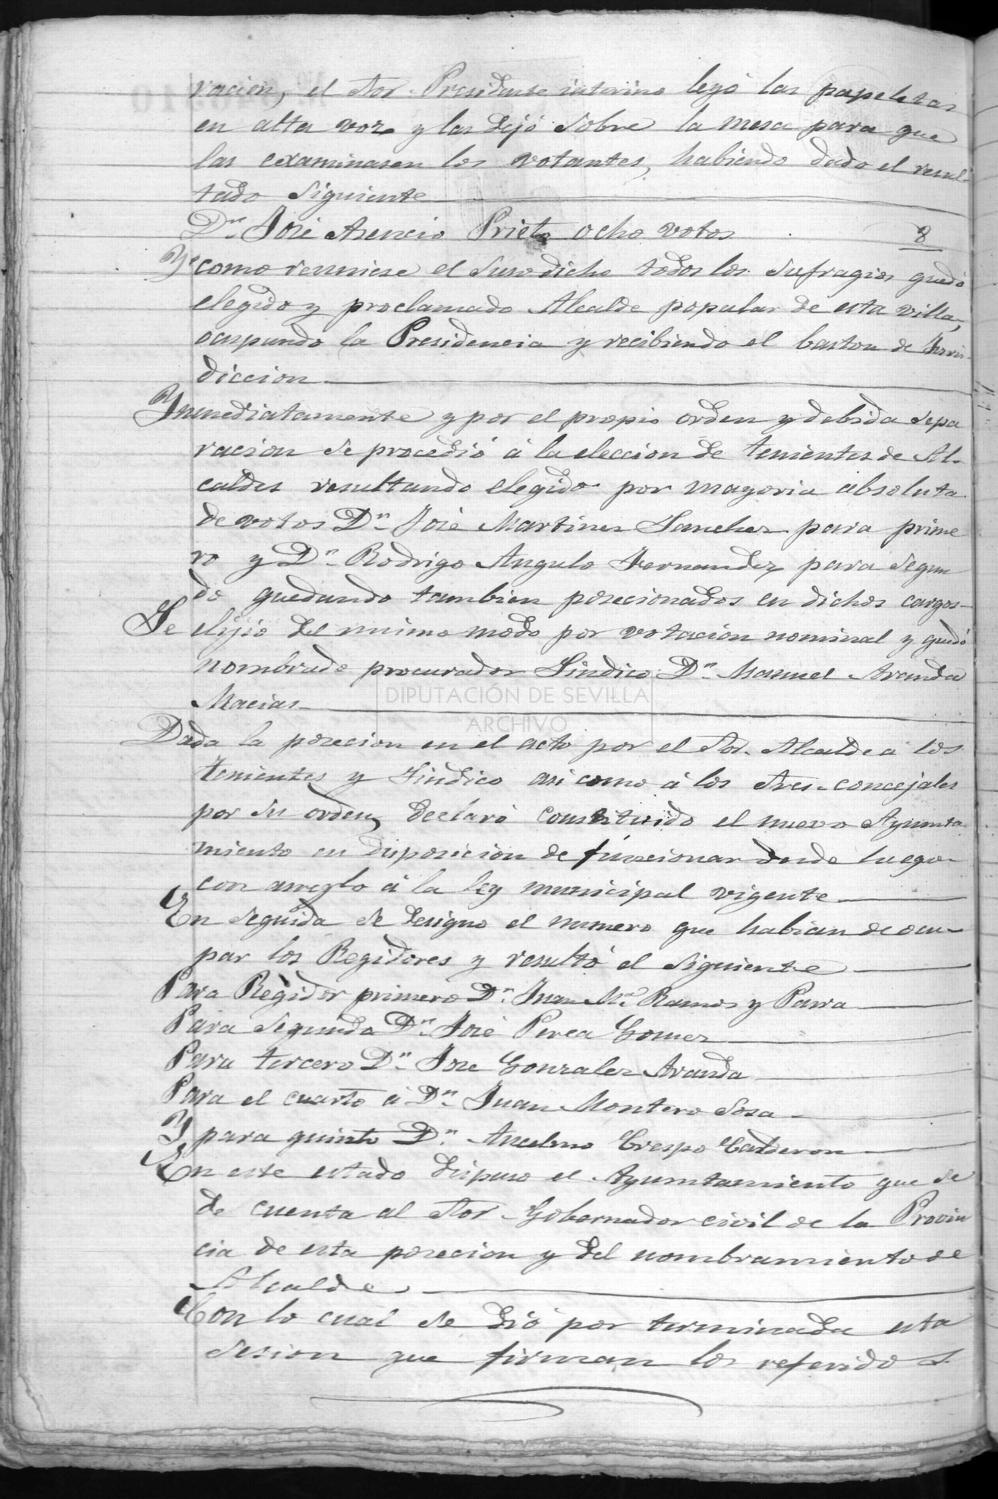 racion, el Sor. Presidente interino leyó las papeletas
en alta voz y las dejó sobre la mesa para que
las examinasen los votantes, habiendo dado el resul-
tado siguiente
Dn. José Asencio Prieto ocho votos 8
Y como reuniese el susodicho todos los sufragios quedó
elegido y proclamado Alcalde popular de esta villa,
ocupando la Presidencia y recibiendo el baston de Juris-
diccion
Ynmediatamente y por el propio orden y debida sepa
racion se procedió á la eleccion de tenientes de Al-
caldes resultando elegido por mayoria absoluta
de votos Dn. José Martinez Sanchez para prime
ro y Dn. Rodrigo Angulo Fernandez para segun
do quedando tambien posecionados en dichos cargos
Se elijió del mismo modo por votacion nominal y quedó
nombrado procurador Síndico Dn. Manuel Aranda
Macias
DIPUTACIÓN DE SEVILLA
ARCHIVO
Dada la posecion en el acto por el Sor. Alcalde á los
tenientes y Síndico asi como á los Sres. concejales
por su orden, declaró constituido el nuevo Ayunta
miento en disposicion de funcionar desde luego
con arreglo á la ley municipal vigente
En seguida se designó el numero que habian de ocu-
par los Regidores y resultó el siguiente
Para Regidor primero Dn. Juan Ma. Ramos y Parra
Para segundo Dn. José Perea Gomez
Para tercero Dn. Jose Gonzalez Aranda
Para el cuarto á Dn. Juan Montero Sosa
Y para quinto Dn. Anselmo Crespo Calderon
En este estado dispuso el Ayuntamiento que se
de cuenta al Sor. Gobernador civil de la Provin
cia de esta posecion y del nombramiento de
Alcalde
Con lo cual se dió por terminada esta
sesion que firman los referido S.